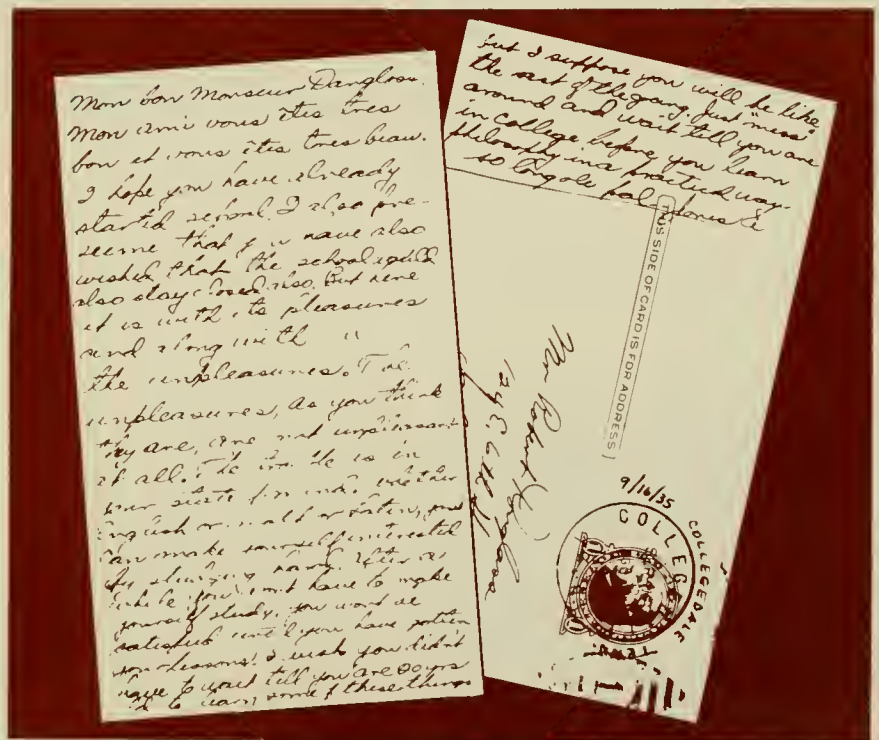 Mon bon Monsieur Danglose
Mon ami vous êtes tres
bon et vous êtes tres beau.
I hope you have already
started school. I also pre-
seeme that you have also
wished that the school could
also stay closed also. But here
it is with its pleasures
and along with "
the unpleasures. The
unpleasures, as you think
they are, are not unpleasant
at all. The is in
your state of mind. whether
English or math or Latin, you
can make yourself interested
by studying hard. After a
while you wont have to make
yourself study. you wont be
satisfied until you have gotten
your lessons. I wish you didn't
have to wait till you are 20 yrs
old to learn some of these things
but I suppose you will be like
the rest of the gang. Just "mess"
around and wait till you are
in college before you learn
philosophy in a practical way.
so long ole pal
THIS SIDE OF CARD IS FOR ADDRESS
Mr Robert
124 E. 6th St
9/16/35
COLLEGEDALE
COLLEG
TENN.